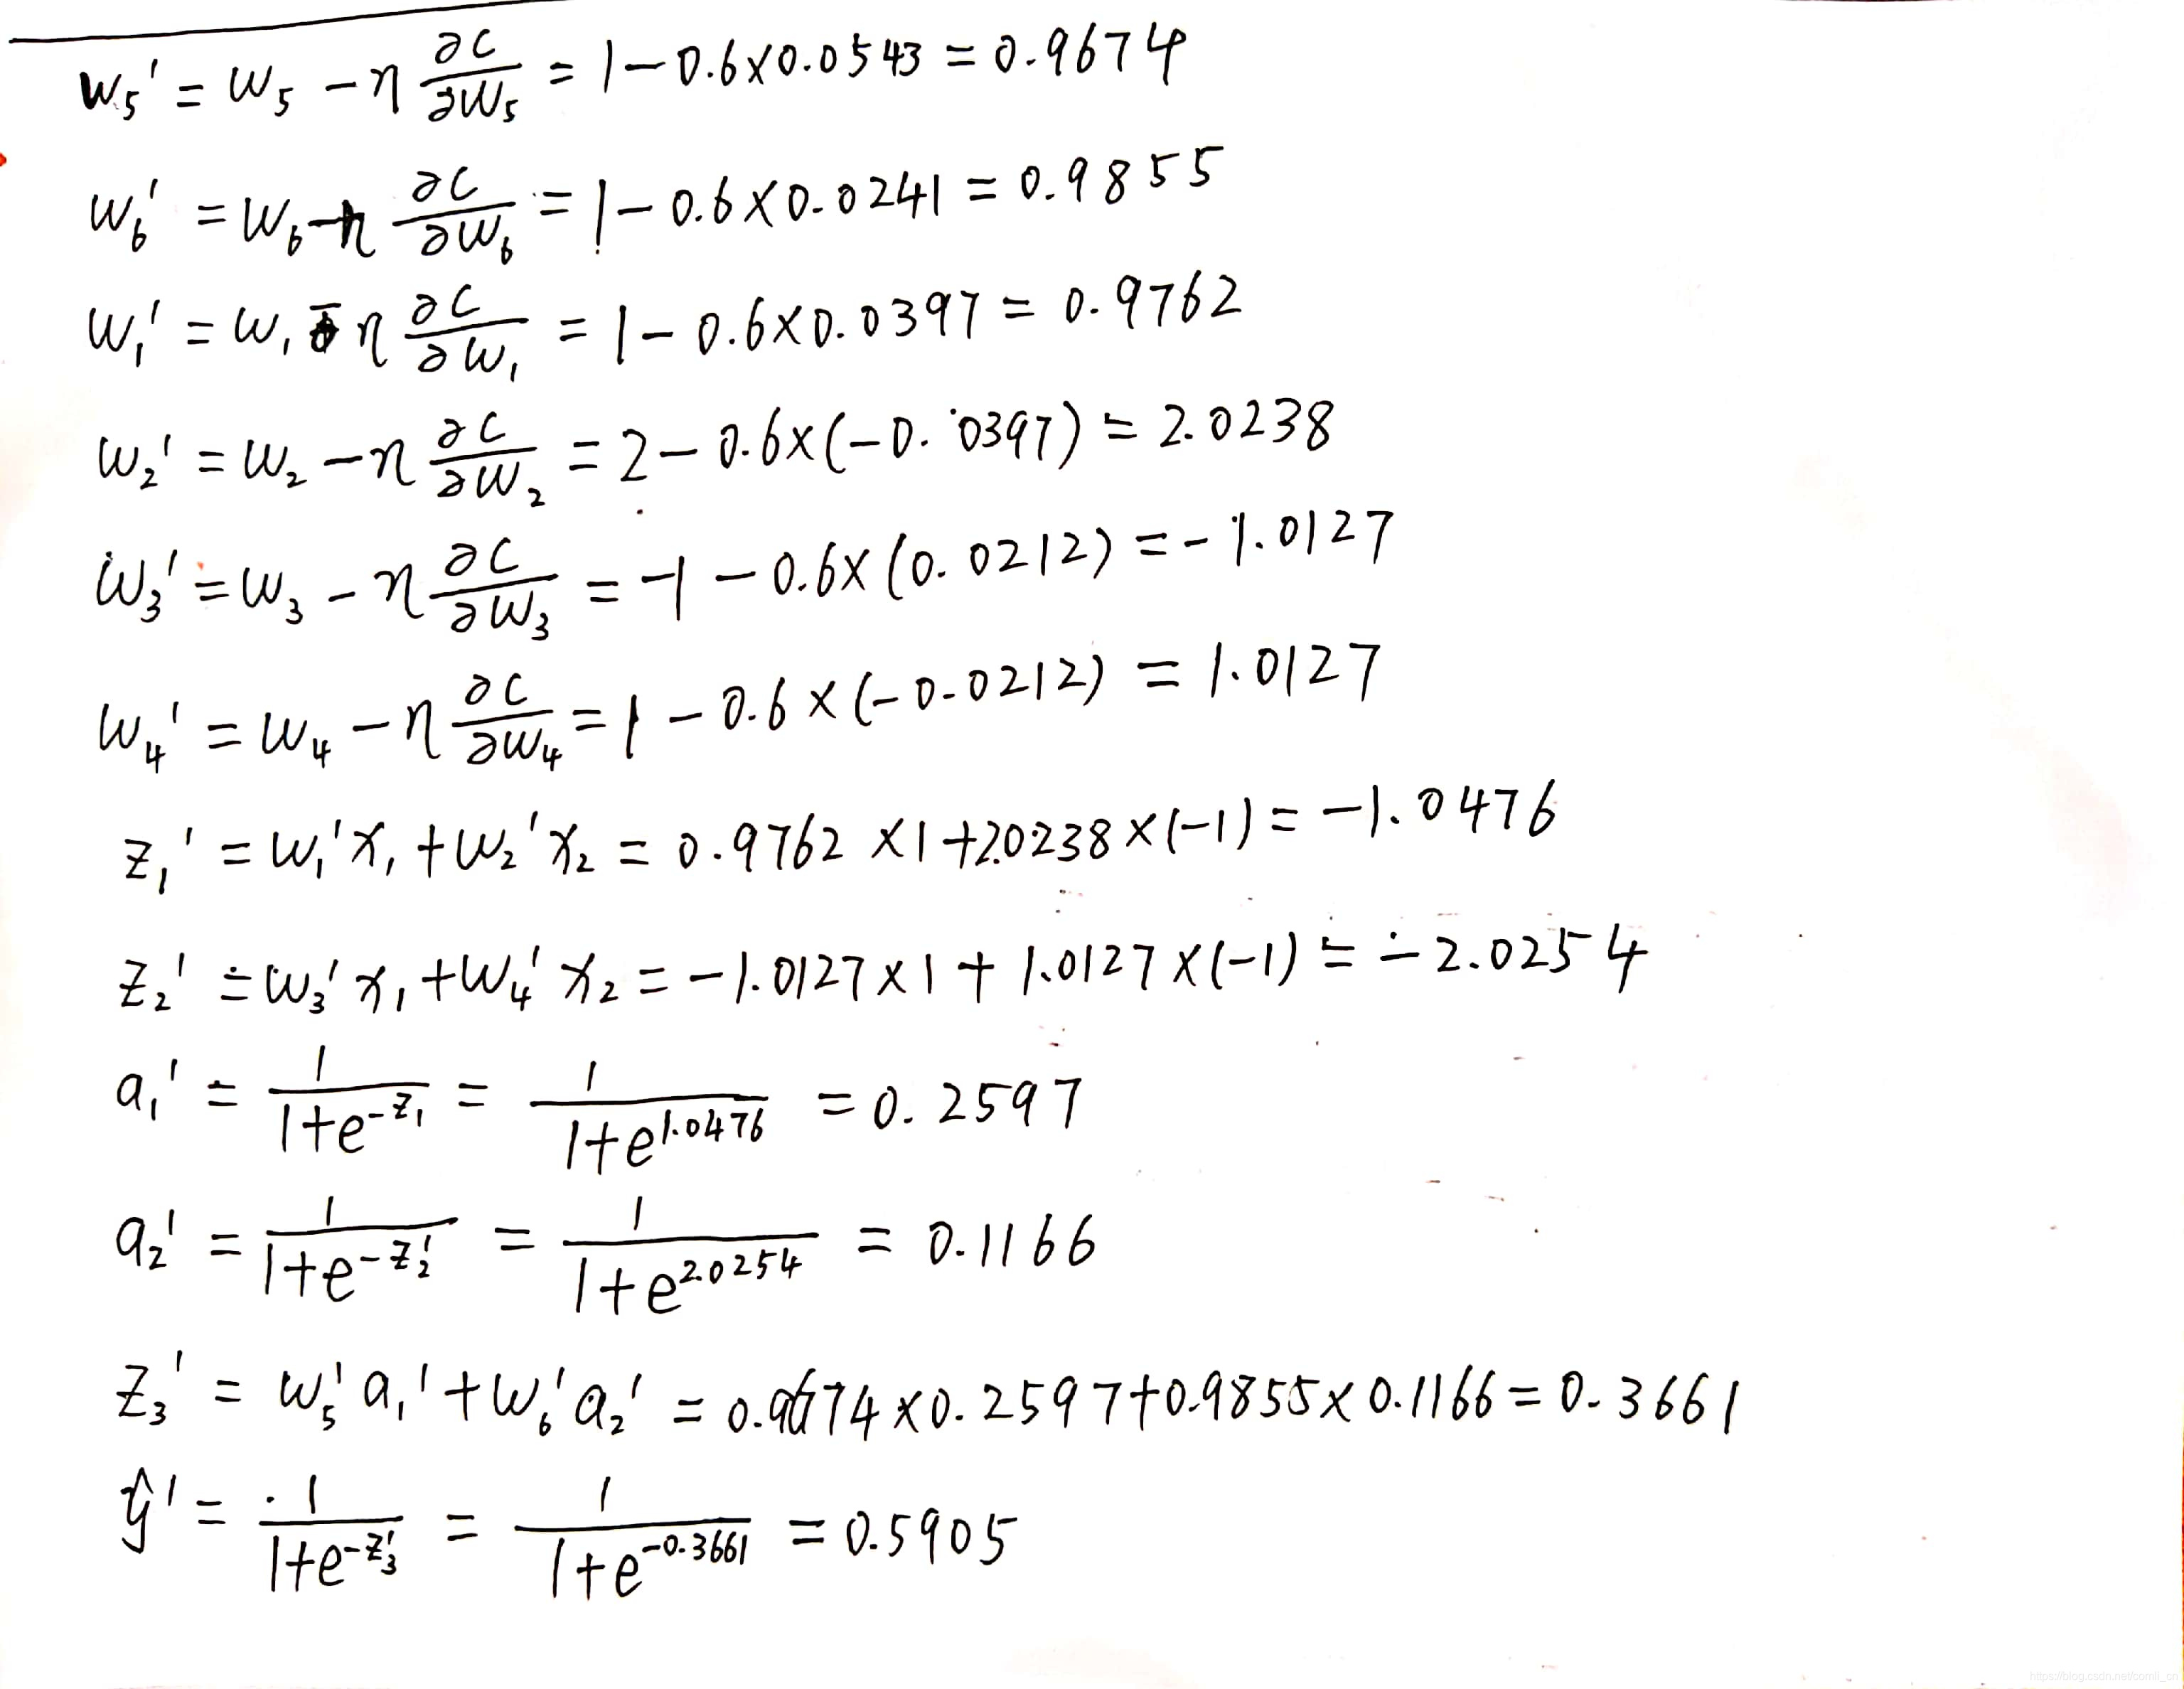 w₅' = w₅ - η ∂C/∂w₅ = 1 - 0.6×0.0543 = 0.9674
w₆' = w₆ - η ∂C/∂w₆ = 1 - 0.6×0.0241 = 0.9855
w₁' = w₁ - η ∂C/∂w₁ = 1 - 0.6×0.0397 = 0.9762
w₂' = w₂ - η ∂C/∂w₂ = 2 - 0.6×(-0.0397) = 2.0238
w₃' = w₃ - η ∂C/∂w₃ = -1 - 0.6×(0.0212) = -1.0127
w₄' = w₄ - η ∂C/∂w₄ = 1 - 0.6×(-0.0212) = 1.0127
z₁' = w₁'x₁ + w₂'x₂ = 0.9762×1+2.0238×(-1) = -1.0476
z₂' = w₃'x₁ + w₄'x₂ = -1.0127×1 + 1.0127×(-1) = -2.0254
a₁' = 1/(1+e^(-z₁)) = 1/(1+e^(1.0476)) = 0.2597
a₂' = 1/(1+e^(-z₂')) = 1/(1+e^(2.0254)) = 0.1166
z₃' = w₅'a₁' + w₆'a₂' = 0.9674×0.2597+0.9855×0.1166 = 0.3661
ŷ' = 1/(1+e^(-z₃')) = 1/(1+e^(-0.3661)) = 0.5905